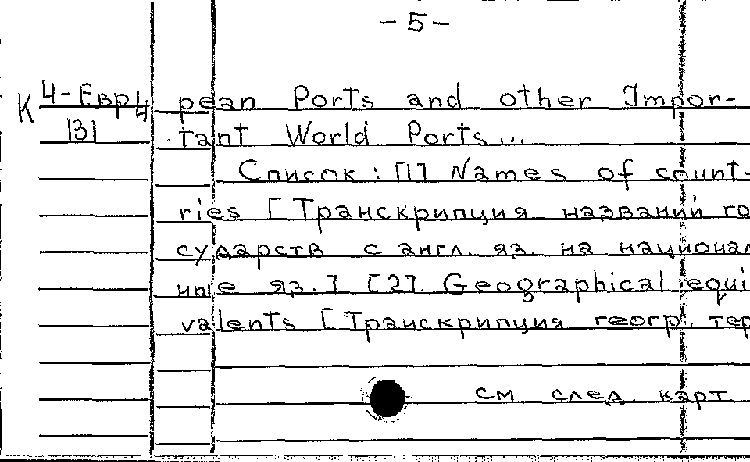 -5-
К 4-Евр4 pean Ports and other Impor-
131 tant World Ports...
Список: [1] Names of count-
ries [Транскрипция названий го
сударств с англ. яз. на национал
ьные яз.] [2]. Geographical equi
valents [Транскрипция геогр. тер
см след. карт